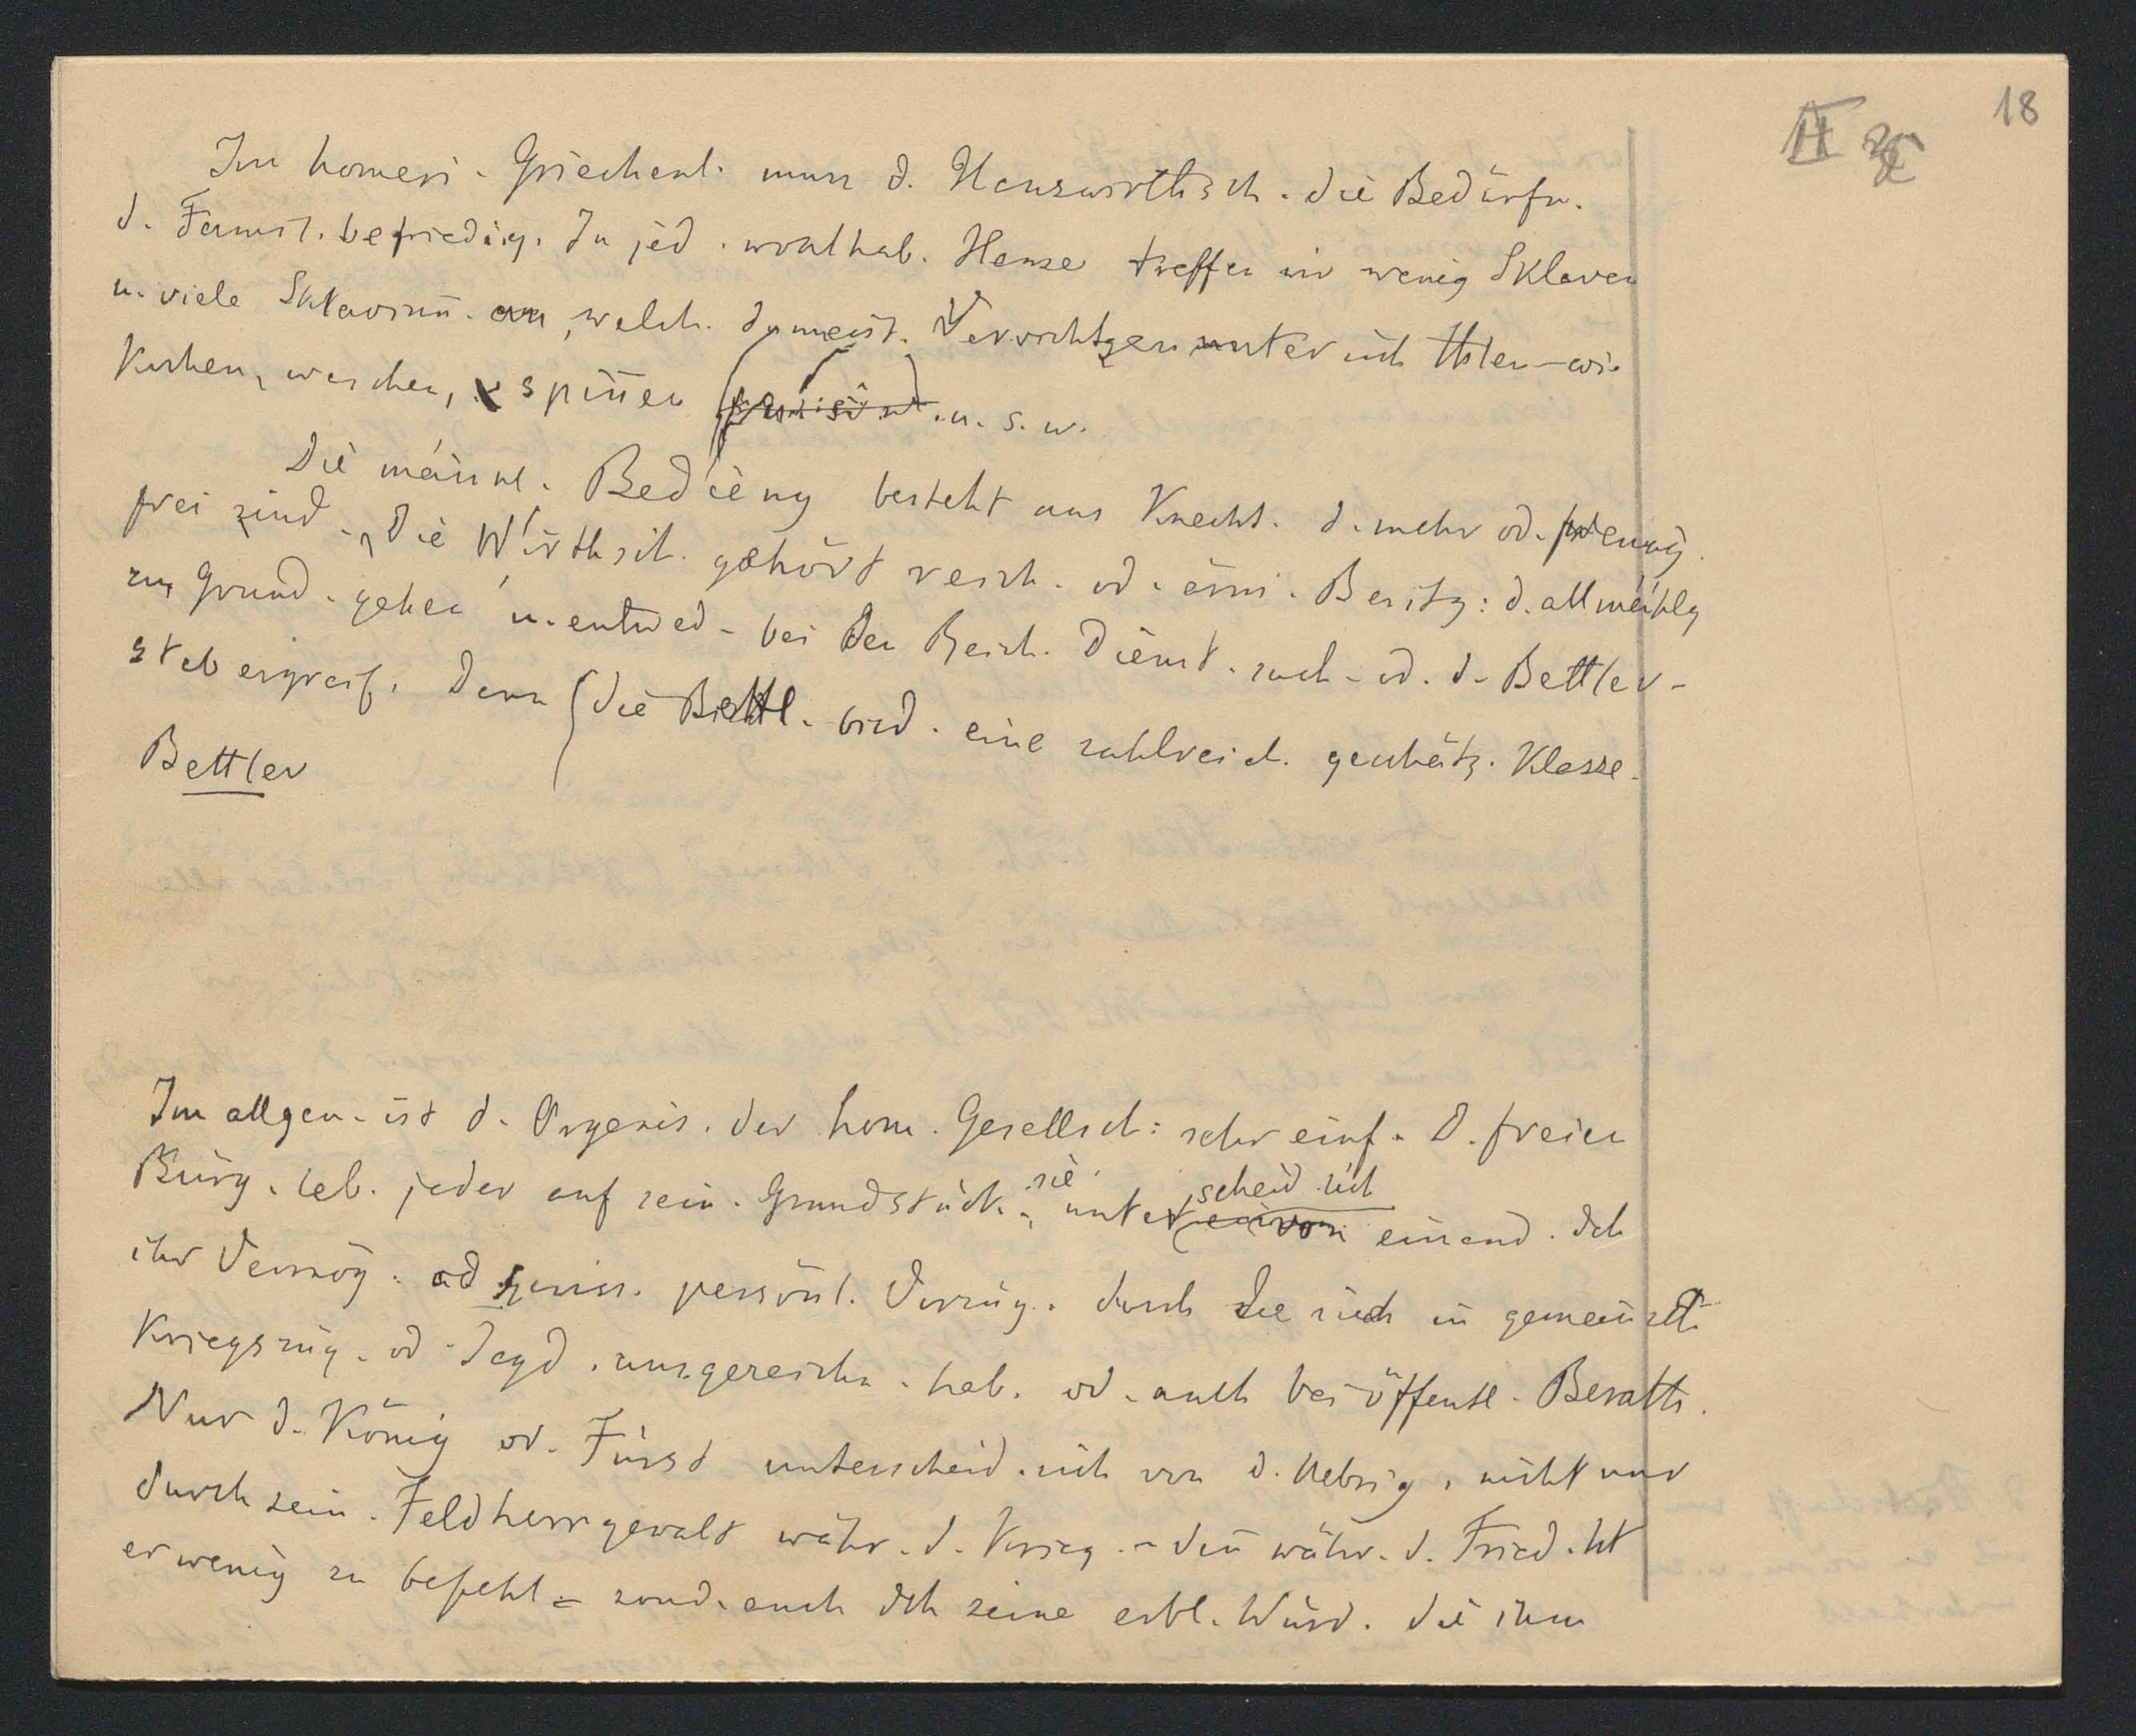 18
II
Im homeri. Griechenl. muss d. Hauswirthsch. die Bedürfn.
d. Famil. befriedig. In jed. wohlhab. Hause treffen wir wenig Sklaven
u. viele Sklavinn. an, welch. d. meist. Verrichtgen unter sich thlen – wie
Kochen, waschen, spiñen u. s. w.
Die männl. Bedieng besteht aus Knecht. d. mehr od. wenig.
frei sind. Die Wirthsch. gehört reich. od. armi. Besitz: d. allmählg
zu Grund. gehen u. entwed. bei den Reich. Dienst. such. od. d. Bettler-
stab ergreif. Denn die Bettl. bild. eine zahlreich. geschätz. Klasse.
Bettler
Im allgem. ist d. Organis. der hom. Gesellsch: sehr einf. D. freien
Bürg. leb. jeder auf sein. Grundstück. sie unterscheid. sich von einand. dch
ihr Vermög. od gewiss. persönl. Vorzüg. durch die sie sich in gemeinsch.
Kriegszüg. od Jagd. ausgezeichn. hab. od. auch bei öffentl. Berath.
Nur d. König od. Fürst unterscheid. sich von d. Uebrig. nicht nur
durch sein. Feldherrngewalt währ. d. Krieg. – deñ währ. d. Fried. ht
er wenig zu befehl – sond. auch dch seine erbl. Würd. die ihm